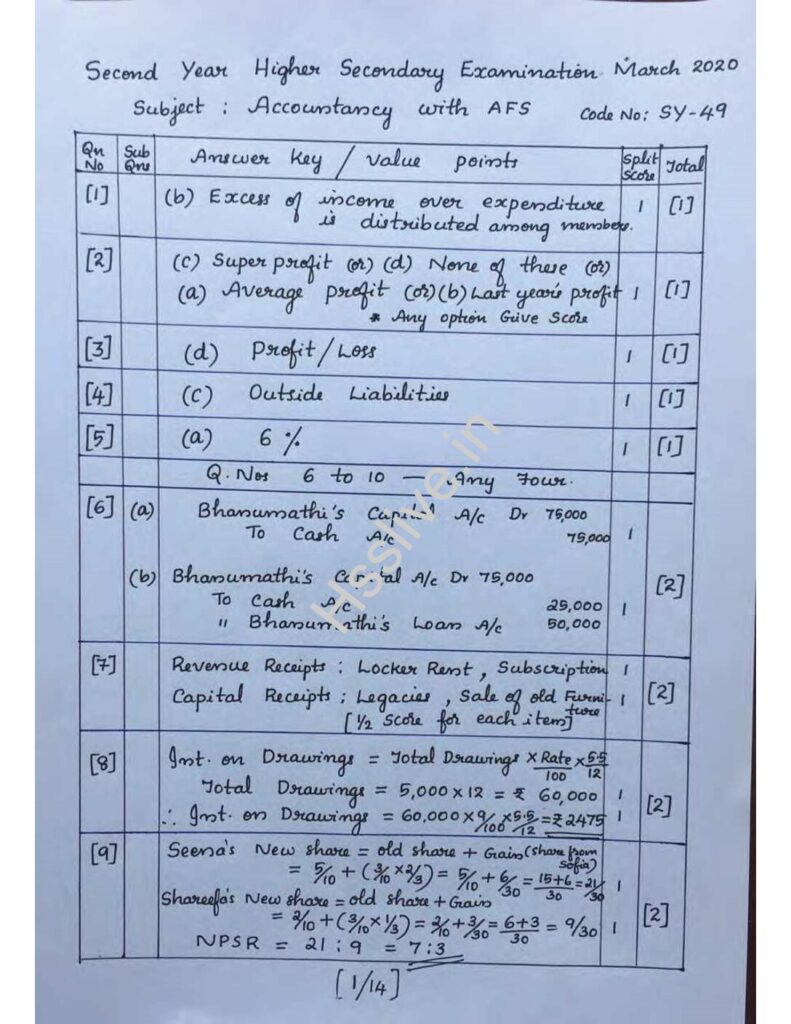 Second Year Higher Secondary Examination March 2020
Subject : Accountancy with AFS Code No: SY-49
Qn No Sub Qns Answer Key / value points Split Score Total
[1] (b) Excess of income over expenditure 1 [1]
is distributed among members.
[2] (c) Super profit (or) (d) None of these (or)
(a) Average profit (or) (b) Last year's profit 1 [1]
* Any option Give Score
[3] (d) Profit / Loss 1 [1]
[4] (c) Outside Liabilities 1 [1]
[5] (a) 6 % 1 [1]
Q. Nos 6 to 10 — Any Four.
[6] (a) Bhanumathi's Capital A/c Dr 75,000
To Cash A/c 75,000 1
(b) Bhanumathi's Capital A/c Dr 75,000 [2]
To Cash A/c 25,000 1
" Bhanumathi's Loan A/c 50,000
[7] Revenue Receipts : Locker Rent, Subscription 1
Capital Receipts : Legacies, Sale of old Furniture 1 [2]
[½ Score for each item]
[8] Int. on Drawings = Total Drawings × Rate/100 × 5.5/12
Total Drawings = 5,000 × 12 = ₹ 60,000 1 [2]
∴ Int. on Drawings = 60,000 × 9/100 × 5.5/12 = ₹ 2475 1
[9] Seena's New share = old share + Gain (share from Sofia)
= 5/10 + (3/10 × 2/3) = 5/10 + 6/30 = 15+6/30 = 21/30 1
Shareefa's New share = old share + Gain
= 2/10 + (3/10 × 1/3) = 2/10 + 3/30 = 6+3/30 = 9/30 1 [2]
NPSR = 21 : 9 = 7 : 3
[1/14]
Hsslive.in